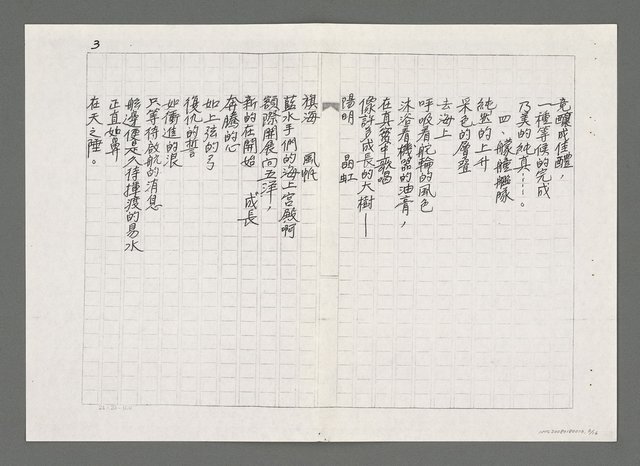 3
竟釀成佳醴，
一種等候的完成
乃美的純真……。
四、艨艟艦隊
純然的上升
采色的層疊
去海上
呼吸着舵輪的風色
沐浴着機器的油膏，
在真空中歌唱
像許多成長的大樹——
陽明 晶虹
旗海 風帆
藍水手們的海上宮殿啊
額際開展向五洋，
新的在開始 成長
奔騰的心
如上弦的弓
復仇的誓
如衝進的浪
只等待啟航的消息
舷邊便是久待揮渡的易水
正直如鼻
在天之陲。